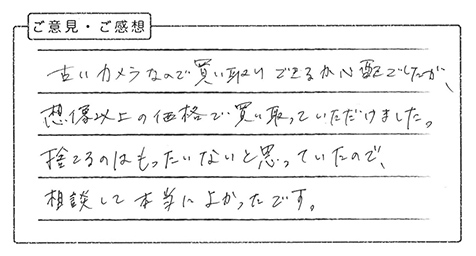 ご意見・ご感想
古いカメラなので買い取りできるか心配でしたが、
想像以上の価格で買い取っていただけました。
捨てるのはもったいないと思っていたので、
相談して本当によかったです。